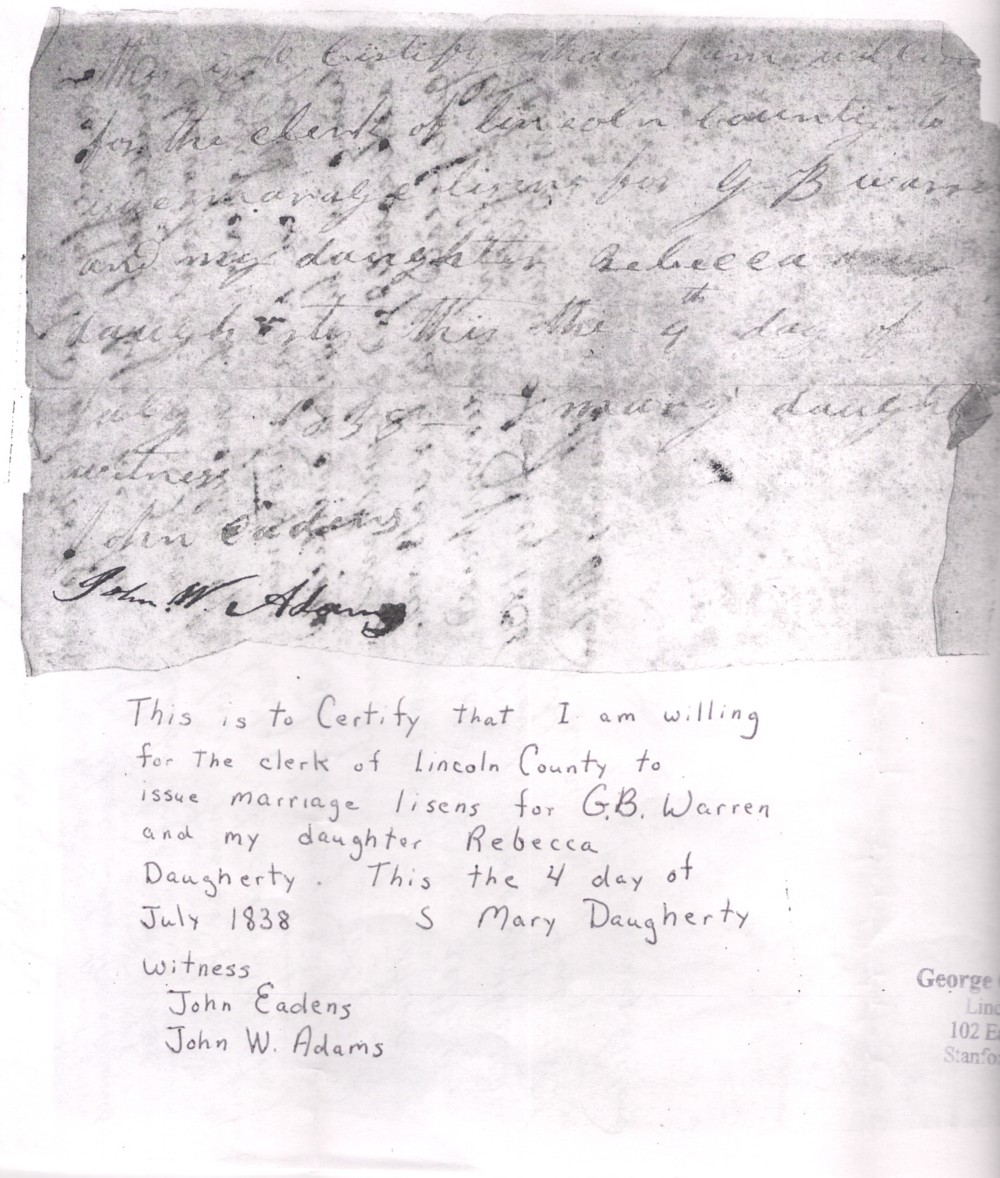 This is to Certify that I am willin
for the clerk of lincoln County to
marage lisens for G B warr
and my daughter Rebecca
Daugherty This the 9th day of
July 1838 S mary daugh
witness
John Eadens
John W. Adams
This is to Certify that I am willing
for The clerk of Lincoln County to
issue marriage lisens for G.B. Warren
and my daughter Rebecca
Daugherty. This the 4 day of
July 1838 S Mary Daugherty
Witness
John Eadens
John W. Adams
George
Linc
102 E
Stanfo